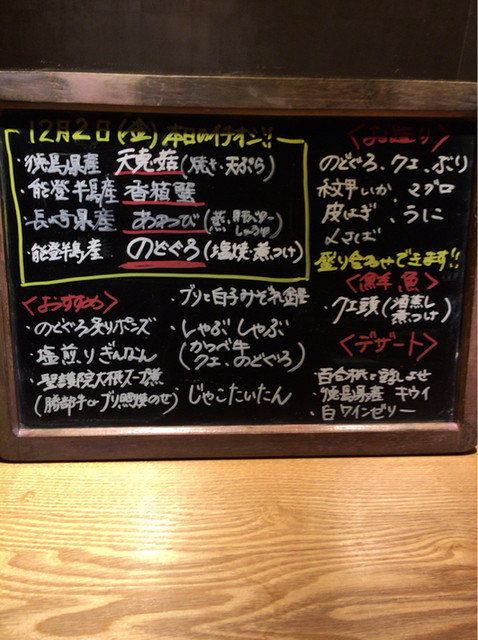 12月2日(金)本日のイチオシ!!
・徳島県産 天恵菇(焼き・天ぷら)
・能登半島産 香箱蟹
・長崎県産 あわび(蒸し、肝バターしょうゆ)
・能登半島産 のどぐろ(塩焼・煮つけ)
<おすすめ>
・のどぐろ炙りポンズ
・塩煎りぎんなん
・聖護院大根スープ煮
(勝部牛orブリ照焼のせ)
・ブリと白子みぞれ鍋
・しゃぶしゃぶ
(かつべ牛
クエ、のどぐろ)
・じゃこたいたん
<お造り>
のどぐろ、クエ、ぶり
紋甲いか、マグロ
皮はぎ、うに
〆さば
盛り合わせできます!!
<鮮魚>
・クエ頭(酒蒸し
煮つけ)
<デザート>
・徳島県産 キウイ
・白ワインゼリー